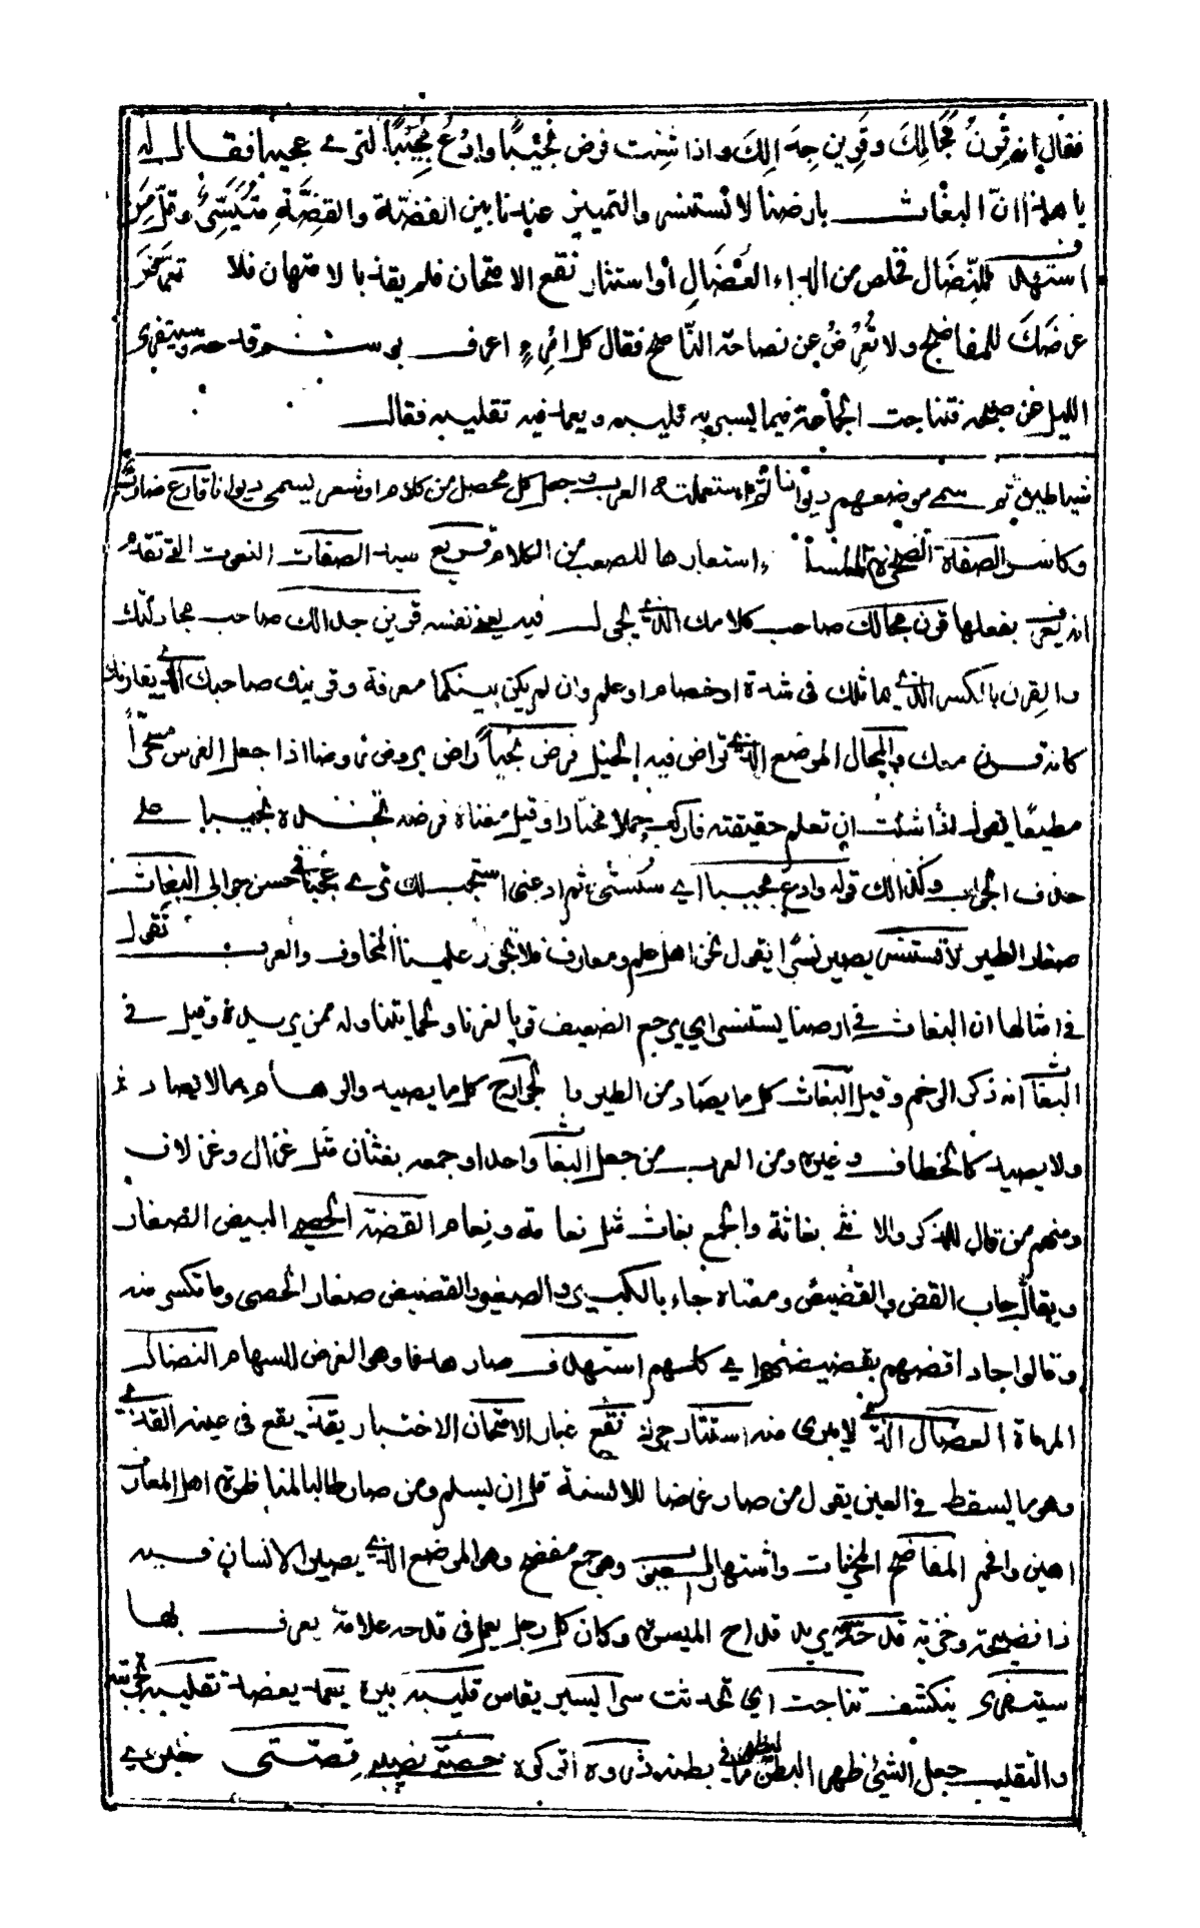 فقال إنه قِرنُ مُجالِكَ وقَرين جِدَالِكَ واذا شئت فرض نجيبًا وادعُ مُجيبًا لترى عجيبا فقال له
يا هذا ان البغاث بارضنا لا تستنسر والتمييز عندنا بين الفضة والقضّة متيسّر وقلّ من
استهدف للنضال فخلص من الداء العُضال أو استثار نقع الامتحان فلم يقذ بالامتهان فلا تعرض
عرضَكَ للمفاضح ولا تُعرِضْ عن نصاحة الناصح فقال كل امرئ اعرف بوسم قدحه وسيتفرى
الليل عن صبحه فتناجت الجماعة فيما يسبر به قليبه ويعمد فيه تقليبه فقال
شياطين ثم سمى موضعهم ديوانا ثم استعملته العرب وجعل كل محصل من كلام او شعر يسمى ديوانا قارع ضارب
وكاسر الصفاة الصخرة الملساء استعارها للصعب من الكلام قريع سيد الصفات النعوت التي تقدم
انه بفعلها قرن مجالك صاحب كلامك الذي يجول فيه يعني نفسه قرين جدالك صاحب مجادلتك
والقرن بالكسر الذي يماثلك في شدة او خصام او علم وان لم يكن بينكما معرفة وقرينك صاحبك الذي يقارنك
كانه قرن معك والمجال الموضع الذي تراض فيه الخيل فرض نجيبًا راض يروض روضا اذا جعل الفرس مسخّرًا
مطيعًا يقول اذا شئت ان تعلم حقيقته فاركب جملا مختارا وقيل معناه فرضه تجده نجيبا على
حذف الجواب وكذالك قوله وادع مجيبا اي سلني ثم ادعني استجب لك ترى عجبًا في حسن جوابي البغاث
صغار الطير لا تستنسر يصير نسرًا يقول نحن اهل علم ومعارف فلا تجوز علينا المخاوف والعرب تقول
في امثالها ان البغاث في ارضنا يستنسر اي يرجع الضعيف قويا لعزنا ولحمايتنا وله ممن يريده وقيل في
البغاث انه ذكر الرخم وقيل البغاث كل ما يصاد من الطير والجوارح كل ما يصيد والرهام ما لا يصاد
ولا يصيد كالخطاف وغيره ومن العرب من جعل البغاث واحدا وجمعه بغثان مثل غزال وغزلان
ومنهم من قال للذكر والانثى بغاثة والجمع بغاث مثل نعامة ونعام القضة الحصى البيض الصغار
ويقال جاء القض والقضيض ومعناه جاء بالكبير والصغير والقضيض صغار الحصى وما تكسر منه
وقالوا جاء اقضهم بقضيضهم اي كلهم استهدف صار هدفا وهو الغرض للسهام النضال
المرماة العضال الذي لا يبرى منه استثار حرك نقع غبار الامتحان الاختبار يقذ يقع في عينه القذى
وهو ما يسقط في العين يقول من صار غرضا للالسنة قل ان يسلم ومن صار طالبا لمناظرة اهل المعارف
اهين وافحم المفاضح المخزيات وهو جمع مفضح وهو الموضع الذي يصير الانسان فيه
ذا فضيحة وخزية قدحه يريد قداح الميسر وكان كل رجل يعلم في قدحه علامة يعرف بها
سيتفرى ينكشف تناجت اي تحدثت سرا يسبر يقاس قليبه بيره يعمد يقصد تقليبه تجربته
والتقليب جعل الشيء ظهر البطن في بطنه ذروه اتركوه حصتي نصيبي قصتي خبري